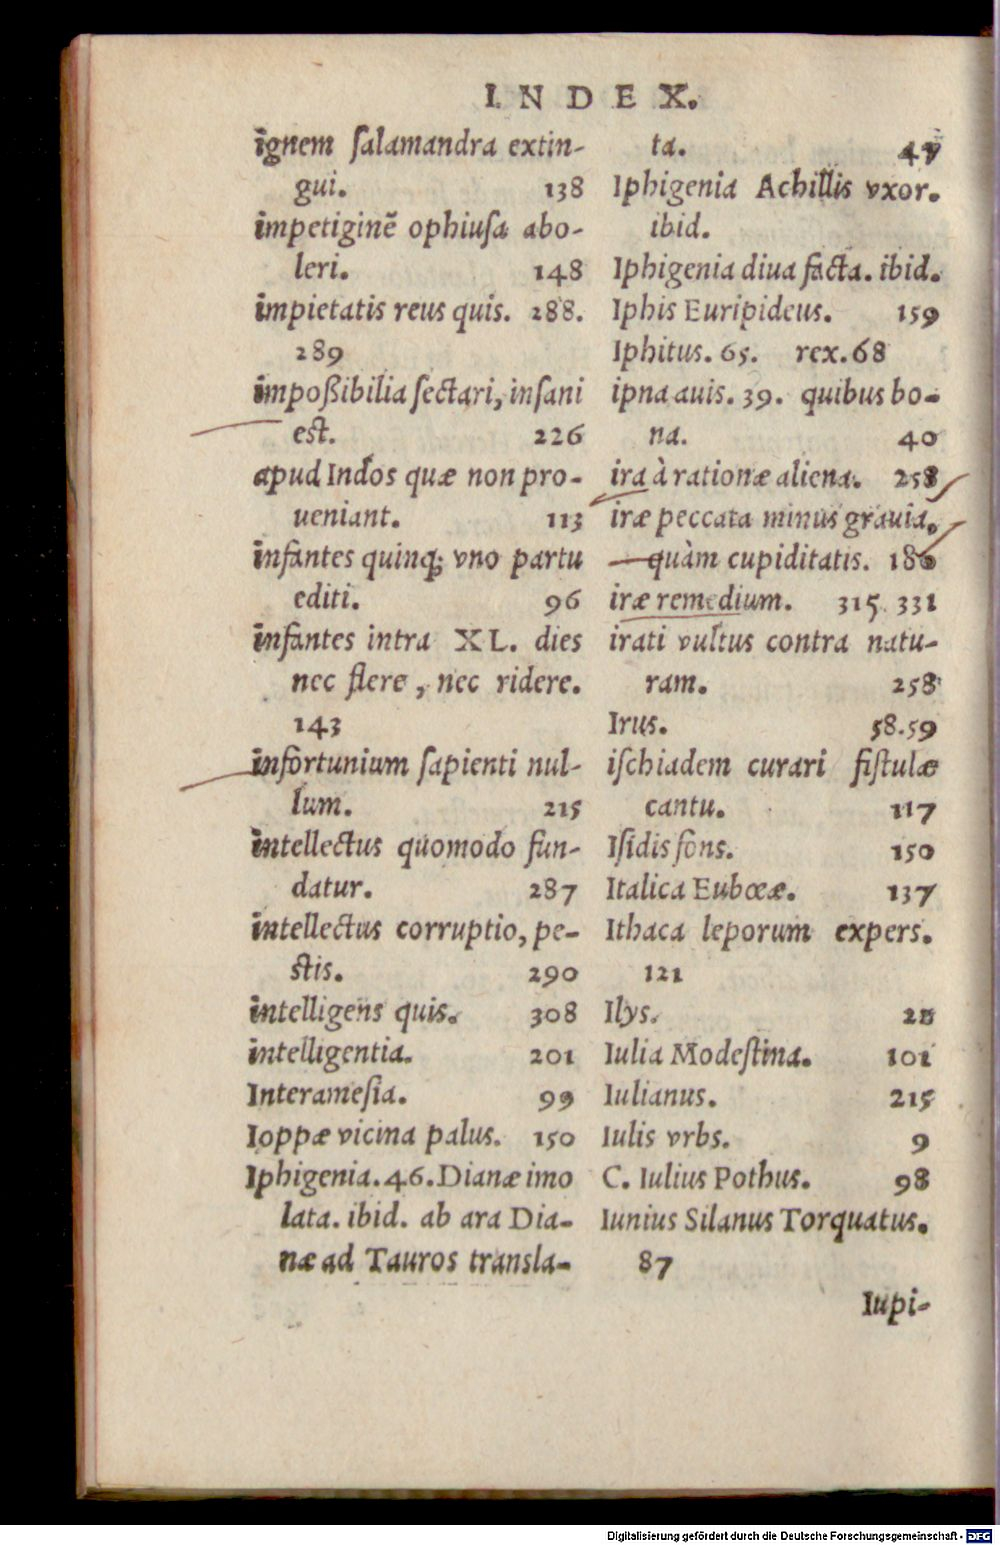 INDEX.
ignem ſalamandra extin-
gui. 138
impetiginē ophiuſa abo-
leri. 148
impietatis reus quis. 288.
289
impoßibilia ſectari, inſani
est. 226
apud Indos quæ non pro-
ueniant. 113
infantes quinq; vno partu
editi. 96
infantes intra XL. dies
nec flere, nec ridere.
143
infortunium ſapienti nul-
lum. 215
intellectus quomodo fun-
datur. 287
intellectus corruptio, pe-
stis. 290
intelligens quis. 308
intelligentia. 201
Interameſia. 99
Ioppæ vicina palus. 150
Iphigenia. 46. Dianæ imo
lata. ibid. ab ara Dia-
næ ad Tauros transla-
ta. 47
Iphigenia Achillis vxor.
ibid.
Iphigenia diua facta. ibid.
Iphis Euripideus. 159
Iphitus. 65. rex. 68
ipna auis. 39. quibus bo-
na. 40
ira à rationæ aliena. 258
iræ peccata minus grauia,
quàm cupiditatis. 180
iræ remedium. 315. 331
irati vultus contra natu-
ram. 258
Irus. 58.59
iſchiadem curari fiſtulæ
cantu. 117
Iſidis fons. 150
Italica Eubœæ. 137
Ithaca leporum expers.
121
Ilys.
Iulia Modeſtina. 101
Iulianus. 215
Iulis vrbs. 9
C. Iulius Pothus. 98
Iunius Silanus Torquatus.
87
Iupi-
Digitalisierung gefördert durch die Deutsche Forschungsgemeinschaft - DFG